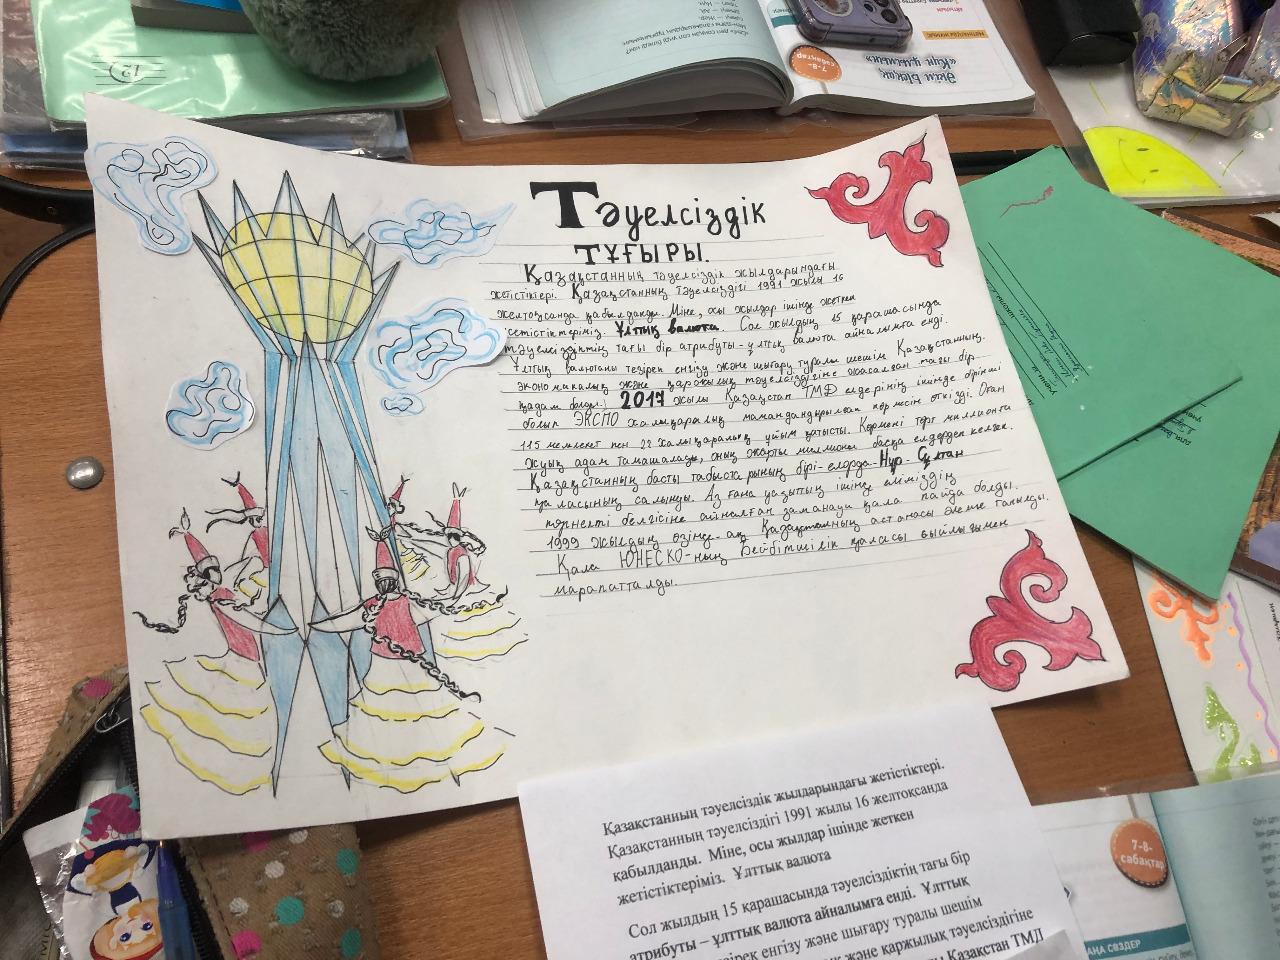 Тәуелсіздік
тұғыры.
Қазақстанның тәуелсіздік жылдарындағы
жетістіктері. Қазақстанның тәуелсіздігі 1991 жылы 16
желтоқсанда қабылданды. Міне, осы жылдар ішінде жеткен
жетістіктеріміз. Ұлттық валюта. Сол жылдың 15 қарашасында
тәуелсіздіктің тағы бір атрибуты-ұлттық валюта айналымға енді.
Ұлттық валютаны тезірек енгізу және шығару туралы шешім Қазақстанның
экономикалық және қаржылық тәуелсіздігіне жасалған тағы бір
қадам болды. 2017 жылы Қазақстан ТМД елдерінің ішінде бірінші
болып ЭКСПО халықаралық мамандандырылған көрмесін өткізді. Оған
115 мемлекет пен 22 халықаралық ұйым қатысты. Көрмені төрт миллионға
жуық адам тамашалады, оның жарты миллионы басқа елдерден келген.
Қазақстанның басты табыстарының бірі-елорда-Нұр-Сұлтан
қаласының салынуы. Аз ғана уақыттың ішінде еліміздің
көрнекті белгісіне айналған заманауи қала пайда болды.
1999 жылдың өзінде-ақ Қазақстанның астанасы әлемге танылды.
Қала ЮНЕСКО-ның Бейбітшілік қаласы сыйлығымен
марапатталды.
Қазақстанның тәуелсіздік жылдарындағы жетістіктері.
Қазақстанның тәуелсіздігі 1991 жылы 16 желтоқсанда
қабылданды. Міне, осы жылдар ішінде жеткен
жетістіктеріміз. Ұлттық валюта
Сол жылдың 15 қарашасында тәуелсіздіктің тағы бір
атрибуты – ұлттық валюта айналымға енді. Ұлттық
енгізу және шығару туралы шешім
және қаржылық тәуелсіздігіне
Қазақстан ТМД
7-8-
сабақтар
Әкім Ысқақ
«Күн ұлымын»
7-8-
сабақтар
СӨЗДЕР